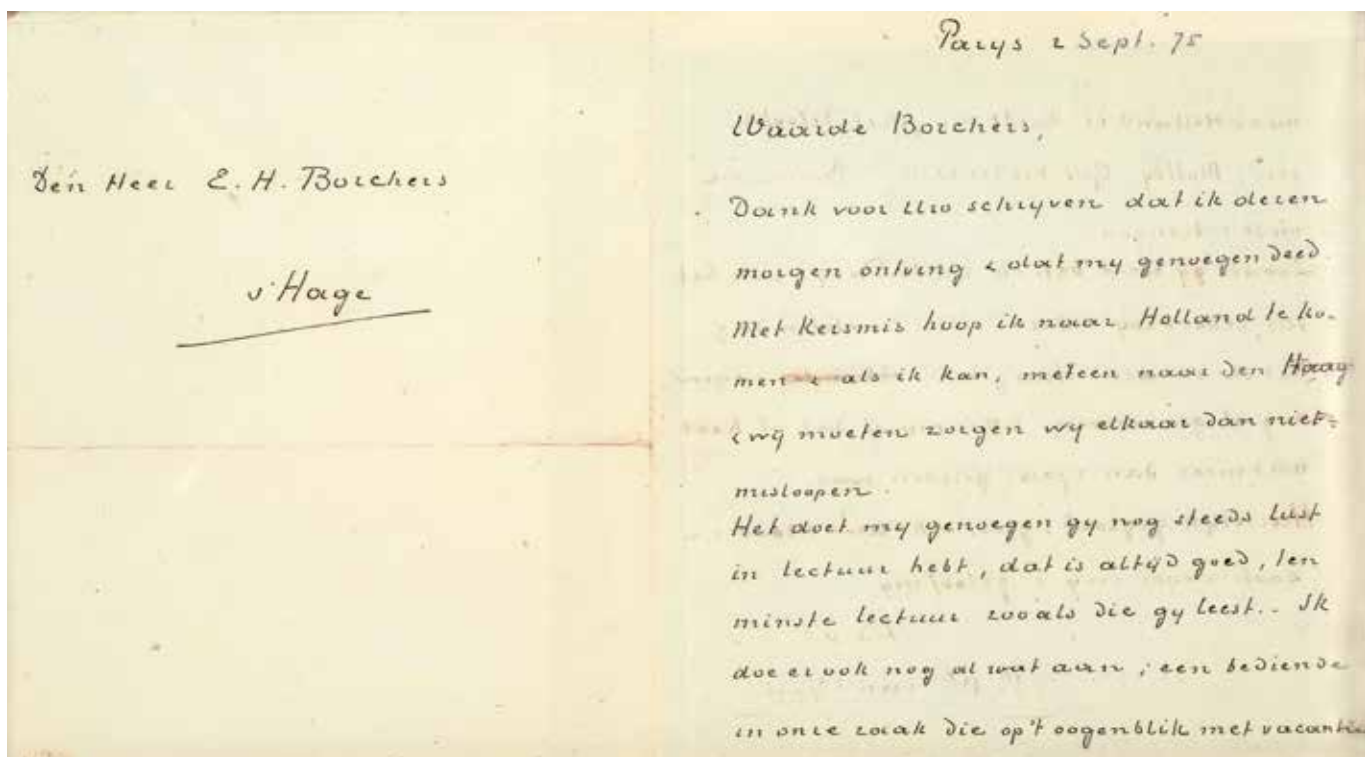 Den Heer E. H. Borchers
s'Hage
Parys 2 Sept. 75
Waarde Borchers,
Dank voor Uw schryven dat ik dezen
morgen ontving & dat my genoegen deed.
Met Kersmis hoop ik naar Holland te ko-
men & als ik kan, meteen naar den Haag
& wij moeten zorgen wy elkaar dan niet
misloopen.
Het doet my genoegen gy nog steeds lust
in lectuur hebt, dat is altijd goed, ten
minste lectuur zooals die gy leest.. Ik
doe er ook nog al wat aan ; een bediende
in onze zaak die op't oogenblik met vacantie